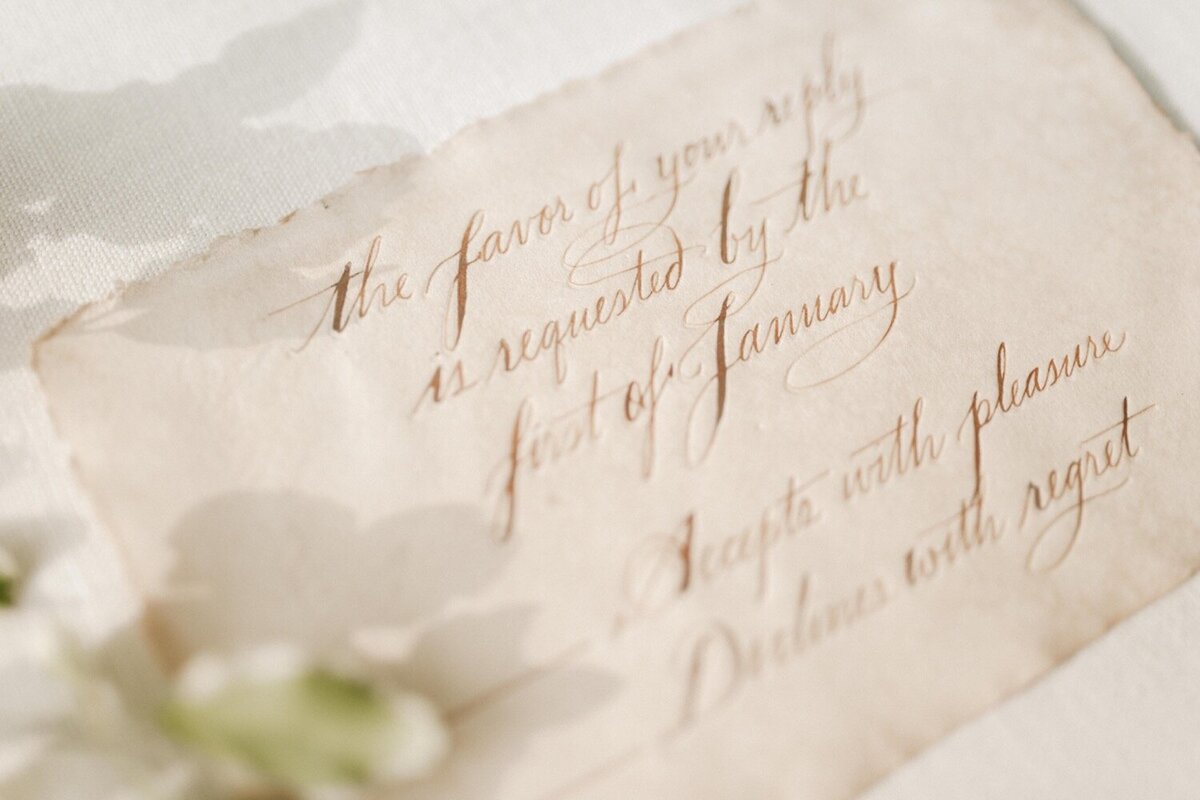 the favor of your reply
is requested by the
first of January
Accepts with pleasure
Declines with regret